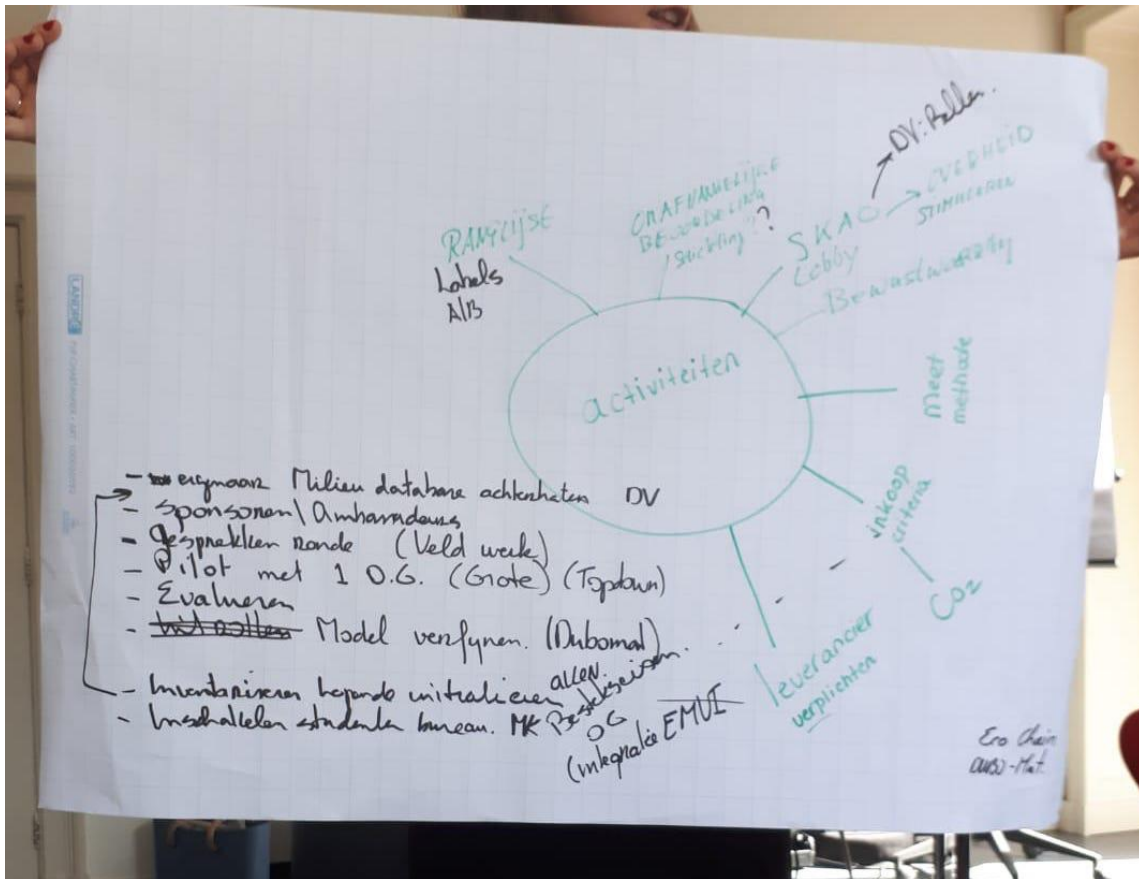 DV: Rollen.
RANGLIJST
Labels
A/B
ONAFHANKELIJKE
BEOORDELING
Stichting ?
SKAO
Lobby
OVERHEID
STIMULEREN
Bewustwording
activiteiten
Meet
methode
inkoop
criteria
CO2
leverancier
verplichten
LANDRÉ
- eigenaar Milieu database achterhalen DV
- Sponsoren / Ambassadeurs
- Gesprekken ronde (Veld werk)
- Pilot met 1 O.G. (Grote) (Topdown)
- Evalueren
- Model verfynen. (Dubomat)
- Inventariseren lopende initiatieven ALLEN.
- Inschakelen studenten bureau. MK
Bestekseisen
OG
(integratie EMVI
Eco Chain
DUBO-Mat.